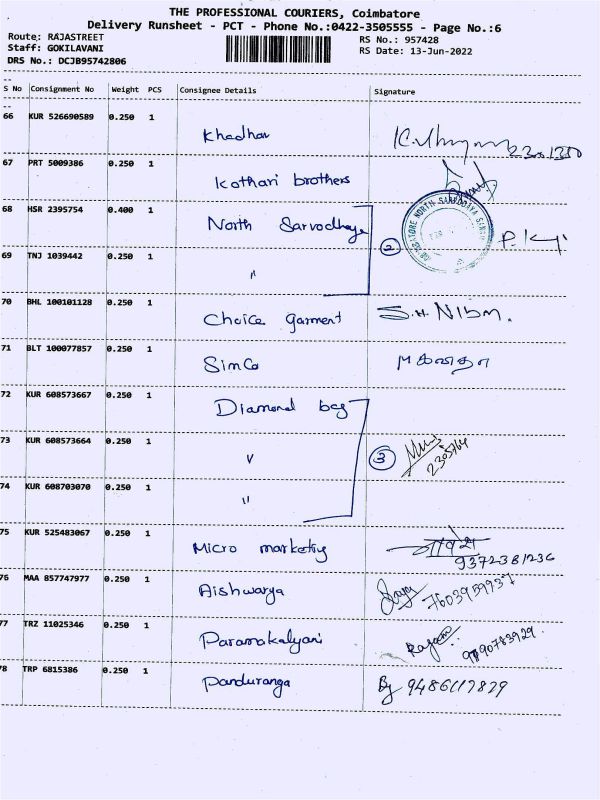 THE PROFESSIONAL COURIERS, Coimbatore
Delivery Runsheet - PCT - Phone No.:0422-3505555 - Page No.:6
Route: RAJASTREET
RS No.: 957428
Staff: GOKILAVANI
RS Date: 13-Jun-2022
DRS No.: DCJB95742806
S No Consignment No Weight PCS Consignee Details Signature
66 KUR 526690589 0.250 1 Khadhar
67 PRT 5009386 0.250 1 Kothari brothers
68 HSR 2395754 0.400 1 North Sarvodhaya
2
69 TNJ 1039442 0.250 1 "
70 BHL 100101128 0.250 1 Choice garment S.H. NIBM.
71 BLT 100077857 0.250 1 SimCo
72 KUR 608573667 0.250 1 Diamond bag
73 KUR 608573664 0.250 1 " 3
74 KUR 608703070 0.250 1 "
75 KUR 525483067 0.250 1 Micro marketing
9372381236
76 MAA 857747977 0.250 1 Aishwarya 7603959937
77 TRZ 11025346 0.250 1 Paramakalyani
78 TRP 6815386 0.250 1 Panduranga 9486117879